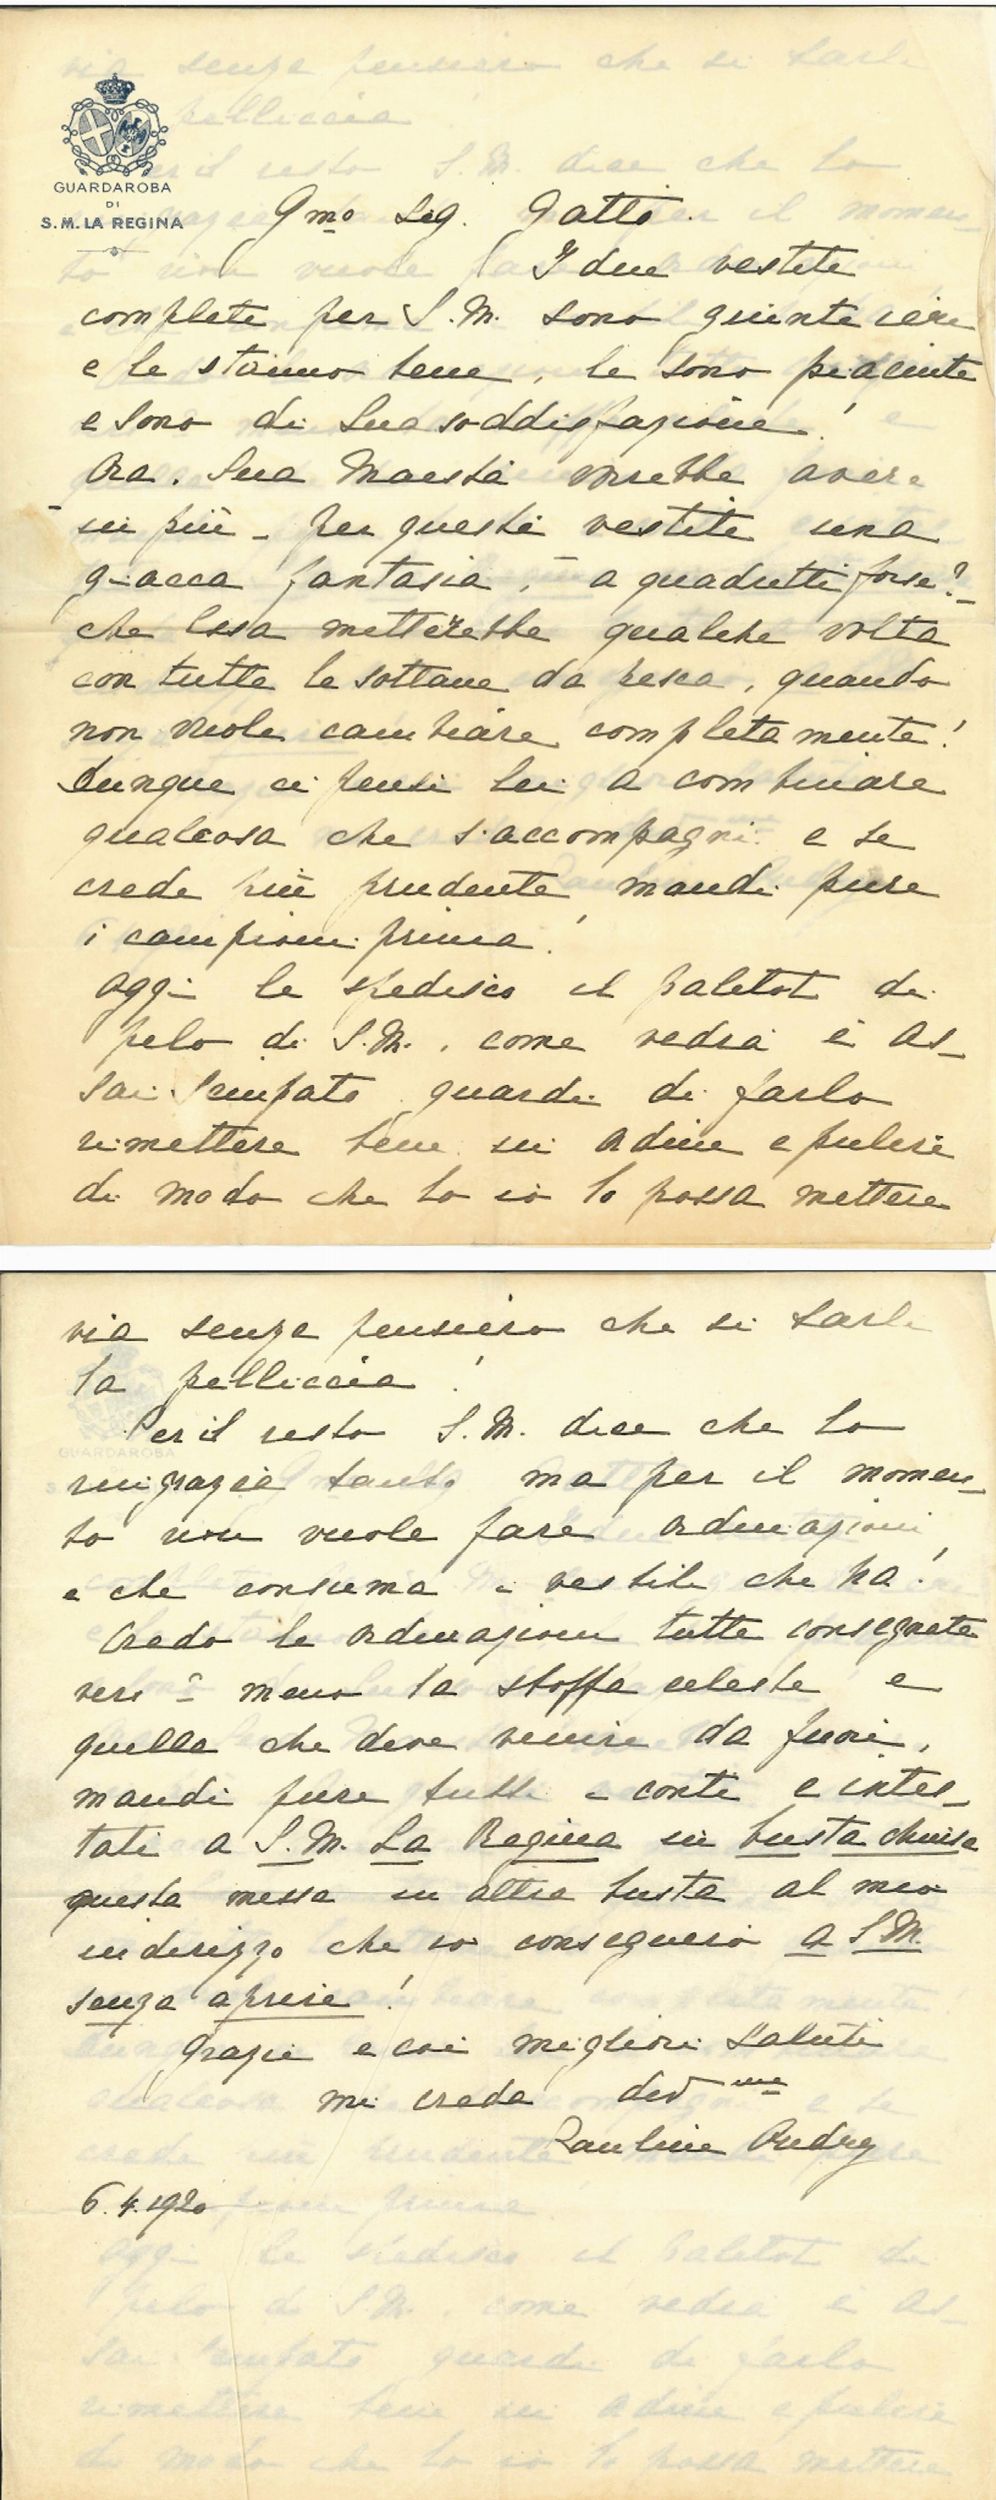 GUARDAROBA
DI
S.M. LA REGINA
Gmo Sig. Gatto.
I due vestiti
completi per S.M. sono giunti ieri
e le stanno bene, le sono piaciuti
e sono di Sua soddisfazione!
Ora. Sua Maestà vorrebbe avere
in più - per questi vestiti una
giacca fantasia, - a quadretti forse?
che Essa metterebbe qualche volta
con tutte le sottane da pesca, quando
non vuole cambiare completamente!
Dunque ci pensi lei a combinare
qualcosa che s'accompagni e se
crede più prudente, mandi pure
i campioni prima!
Oggi le spedisco il paletot di
pelo di S.M., come vedrà è as-
sai sciupato guardi di farlo
rimettere bene in ordine e pulire
di modo che lo io lo possa mettere
via senza pensiero che si tarli
la pelliccia!
Per il resto S.M. dice che lo
ringrazia tanto ma per il momen-
to non vuole fare ordinazioni
e che consuma i vestiti che ha!
Credo le ordinazioni tutte consegnate
vero? meno la stoffa celeste e
quella che deve venire da fuori,
mandi pure tutti i conti e intes-
tati a S.M. La Regina in busta chiusa
questa messa in altra busta al mio
indirizzo che io consegnerò a S.M.
senza aprire!
Grazie e coi migliori saluti
mi creda devma
Pauline
6.4.1920